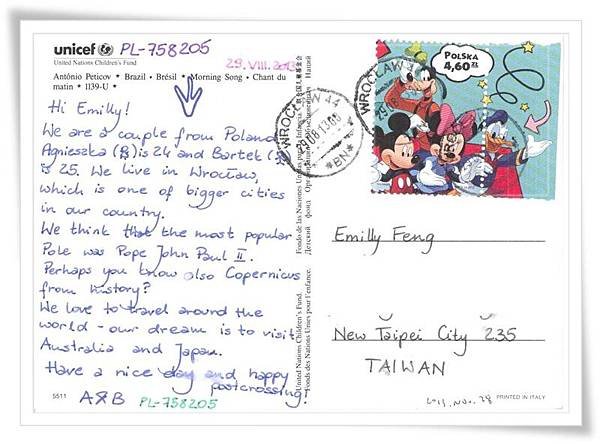 unicef PL-758205
United Nations Children's Fund
29.VIII.2013
António Peticov ★ Brazil • Brésil ★ Morning Song • Chant du
matin ★ 1139-U ★
Hi Emilly!
We are a couple from Poland
Agnieszka is 24 and Bartek
is 25. We live in Wrocław,
which is one of bigger cities
in our country.
We think that the most popular
Pole was Pope John Paul II.
Perhaps you know also Copernicus
from history?
We love to travel around the
world - our dream is to visit
Australia and Japan.
Have a nice day and happy
postcrossing!
A&B PL-758205
5511
United Nations Children's Fund.
Fonds des Nations Unies pour l'enfance.
Fondo de las Naciones Unidas para la Infancia.
Детский фонд Организации Объединенных Наций
WROCŁAW 44
29.08.13
*BN*
WROCŁAW
POLSKA
4,60 ZŁ
Emilly Feng
New Taipei City 235
TAIWAN
2013. Nov. 28
PRINTED IN ITALY